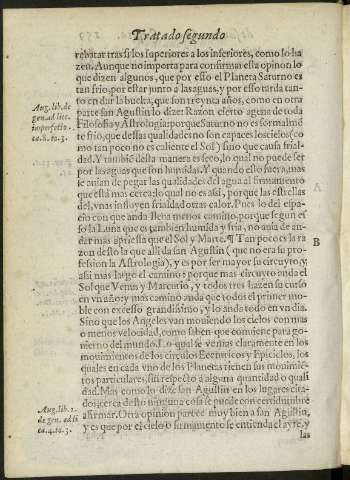 Tratado segundo
rebatar tras si los superiores a los inferiores, como lo ha
zen. Aunque no importa para confirmar esta opinon lo
que dizen algunos, que por esso el Planeta Saturno es
tan frio, por estar junto a las aguas, y por esso tarda tan-
to en dar la buelta, que son treynta años, como en otra
parte san Agustin lo dize: Razon cierto agena de toda
Filosofia y Astrologia: porque Saturno no es formalmẽ
te frio, que dessas qualidades no son capaces los cielos (co
mo tan poco no es caliente el Sol) sino que causa frial-
dad. Y tambiẽ desta manera es seco, lo qual no puede ser
por las aguas que son humidas. Y quando esso fuera, mas
se auian de pegar las qualidades del agua al firmamento
que està mas cerca; lo qual no es assi, porque las estrellas
del, vnas influyen frialdad otras calor. Pues lo del espa-
cio con que anda lleua menos camino, porque segun es-
so la Luna que es tambien humida y fria, no auia de an-
dar mas apriessa que el Sol y Marte. ¶ Tan poco es la ra
zon desto la que alli da san Agustin (que no era su pro-
fession la Astrologia), y es por ser mayor su circuyto, y
assi mas largo el camino: porque mas circuyto anda el
Sol que Venus y Mercurio, y todos tres hazen su curso
en vn año: y mas camino anda que todos el primer mo-
ble con excesso grandissimo, y lo anda todo en vn dia.
Sino que los Angeles van mouiendo los cielos con mas
o menos velocidad, como saben que conuiene para go-
uierno del mundo. Lo qual se vee mas claramente en los
mouimientos de los circulos Eccentricos y Epiciclos, los
quales en cada vno de los Planetas tienen sus mouimiẽ-
tos particulares, sin respecto a alguna quantidad o quali
dad. Mas como lo dize san Agustin en los lugares cita-
dos, acerca desto ninguna cosa se puede con certidumbre
afirmar. Otra opinion parece muy bien a san Agustin,
y es que por el cielo o firmamento se entienda el ayre, y
las
Aug. lib. de
gen. ad litt.
imperfecto.
ca. 8. to. 3.
B
A
Aug. lib. 2.
de gen. ad li
ca. 4. to. 3.